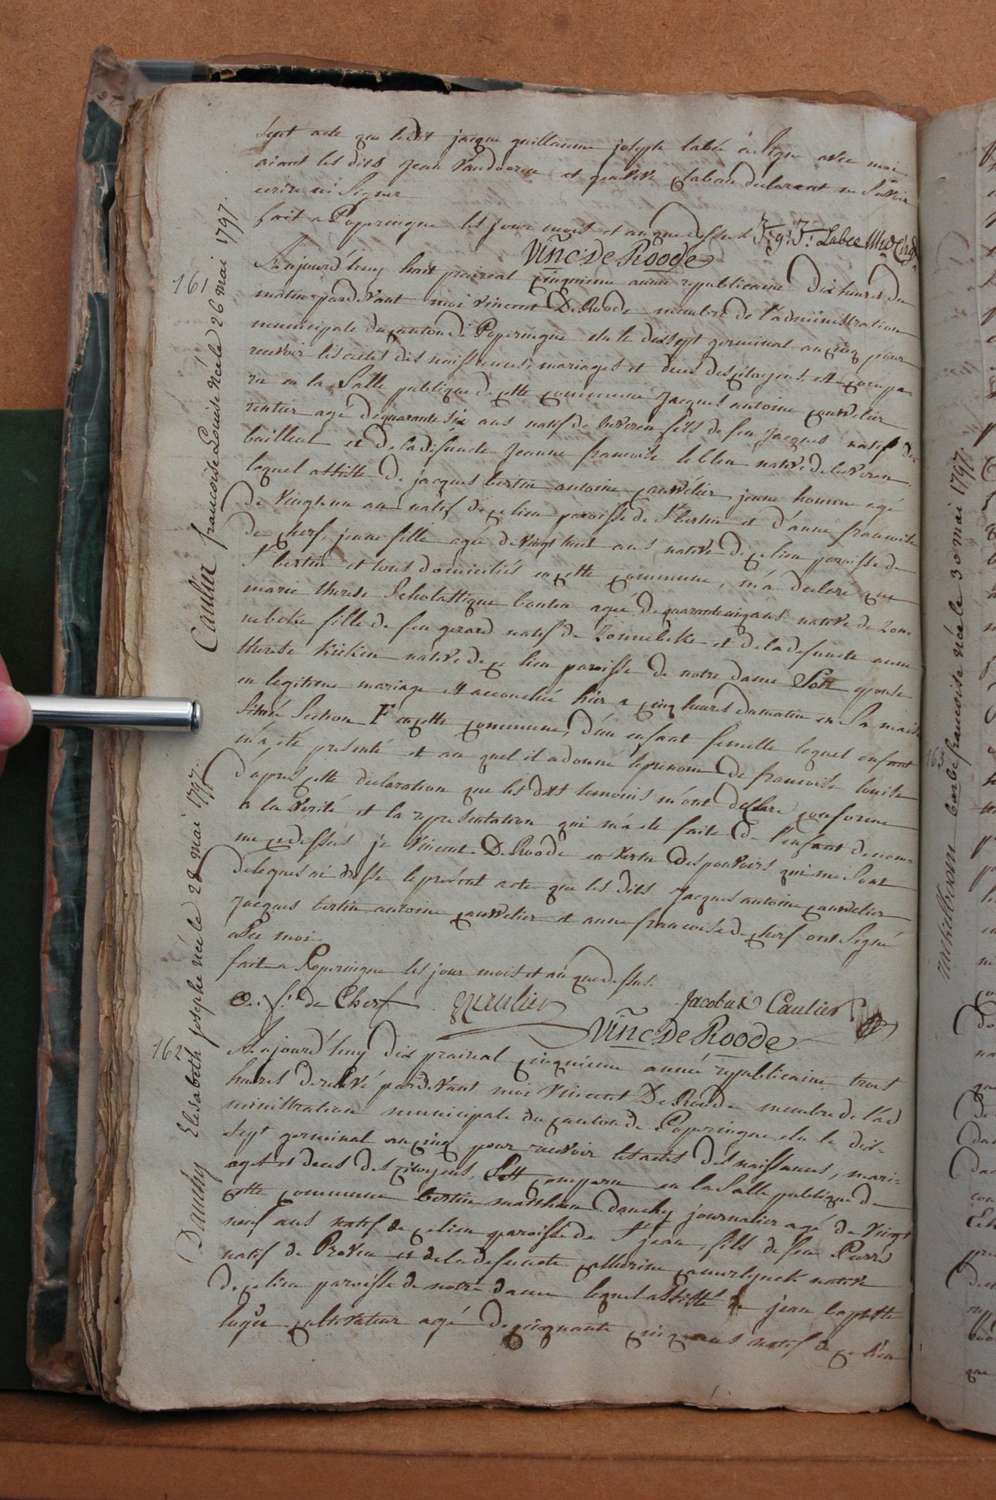 sept acte que ledit jacque guillaume joseph labée a signe avec moi
aiant les dits jean vandoorne et declarant ne savoir
ecrire ni signer
fait a Poperingue les jour mois et an que dessus J: g: J: Labee
Vinc De Roode
161
Caulier francoise Louise née le 26 mai 1797.
Aujourd'huy huit prairial cinquieme année republicaine dix heures du
matin pardevant moi vincent De Roode membre de l'administration
municipale du canton de Poperingue elu le dixsept germinal an cinq pour
recevoir les actes des naissances, mariages et deces des citoyens, est compa
ru en la salle publique de cette commune jacques antoine cauwelier
rentier agé de quarante six ans natif de beveren fils de feu jacques natif de
bailleul et de la defuncte jeanne francoise lebleu native de beveren,
lequel assisté de jacques bertin antoine cauwelier jeune homme agé
de vingt un an natif de ce lieu paroisse de St bertin et d'anne francoise
de cherf, jeune fille agee de vingt huit ans native de ce lieu paroisse de
St bertin et tous domiciliés en cette commune, m'a declaré que
marie therese scholastique bouton agee de quarante cinq ans native de Zon
nebeke fille de feu gerard natif de Zonnebeke et de la defuncte anne
therese kieken native de ce lieu paroisse de notre dame son epouse
en legitime mariage est accouchée hier a cinq heures du matin en sa maison
située section F cette commune, d'un enfant femelle lequel enfant
m'a été presenté et au quel il a donné le prenom de francoise louise
d'apres cette declaration que les dits temoins m'ont declaré conforme
a la verité et la representation qui m'a été faite de l'enfant denom
me cidessus je vincent De Roode en vertu des pouvoirs qui me sont
delegués ai dressé le présent acte que les dits jacques antoine cauwelier
jacques bertin antoine cauwelier et anne francoise de cherf ont signé
avec moi.
fait a Poperingue les jour mois et an que dessus.
a. f: de Cherf Caulier Jacobus Caulier
Vinc De Roode
162
Dauchy Elisabeth josephe née le 28 mai 1797.
Aujourd'huy dix prairial cinquieme année republicaine trois
heures de relevé pardevant moi vincent De Roode membre de l'ad
ministration municipale du canton de Poperingue elu le dix-
sept germinal an cinq pour recevoir les actes des naissances, mari-
ages et deces des citoyens, est comparu en la salle publique de
cette commune bertin matthieu dauchy journalier agé de vingt
neuf ans natif de ce lieu paroisse de St jean fils de feu Pierre
natif de Proven et de la defuncte catherine camerlynck native
de ce lieu paroisse de notre dame lequel assisté de jean baptiste
cultivateur agé de cinquante cinq ans natif de ce lieu
163
barbe francoise née le 30 mai 1797.